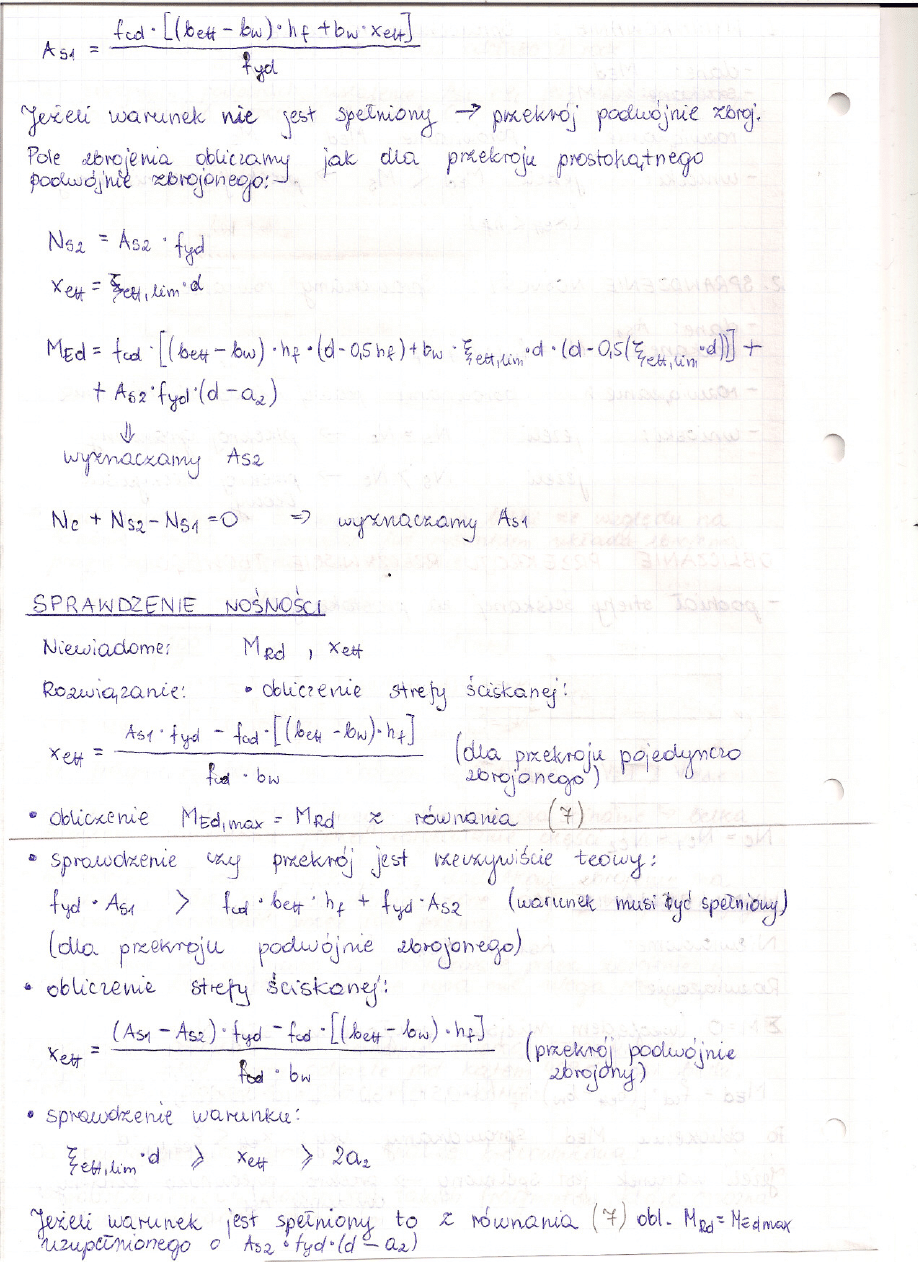 A_S1 = fcd · [(beff − bw) · hf + bw · xeff] / fyd
Jeżeli warunek nie jest spełniony → przekrój podwójnie zbroj.
Pole zbrojenia obliczamy jak dla przekroju prostokątnego
podwójnie zbrojonego: −
N_S2 = A_S2 · fyd
xeff = ξeff,lim · d
M_Ed = fcd · [(beff − bw) · hf · (d − 0,5hf) + bw · ξeff,lim · d · (d − 0,5(ξeff,lim · d))] +
+ A_S2 · fyd · (d − a2)
⇓
wyznaczamy A_S2
Nc + N_S2 − N_S1 = 0 ⇒ wyznaczamy A_S1
SPRAWDZENIE NOŚNOŚCI
Niewiadome: M_Rd , xeff
Rozwiązanie: • obliczenie strefy ściskanej:
xeff = A_S1 · fyd − fcd · [(beff − bw) · hf] / fcd · bw (dla przekroju pojedynczo
zbrojonego)
• obliczenie M_Ed,max = M_Rd z równania (7)
• sprawdzenie czy przekrój jest rzeczywiście teowy:
fyd · A_S1 > fcd · beff · hf + fyd · A_S2 (warunek musi być spełniony)
(dla przekroju podwójnie zbrojonego)
• obliczenie strefy ściskanej:
xeff = (A_S1 − A_S2) · fyd − fcd · [(beff − bw) · hf] / fcd · bw (przekrój podwójnie
zbrojony)
• sprawdzenie warunku:
ξeff,lim · d ⩾ xeff ⩾ 2a2
Jeżeli warunek jest spełniony to z równania (7) obl. M_Rd = M_Edmax
uzupełnionego o A_S2 · fyd · (d − a2)